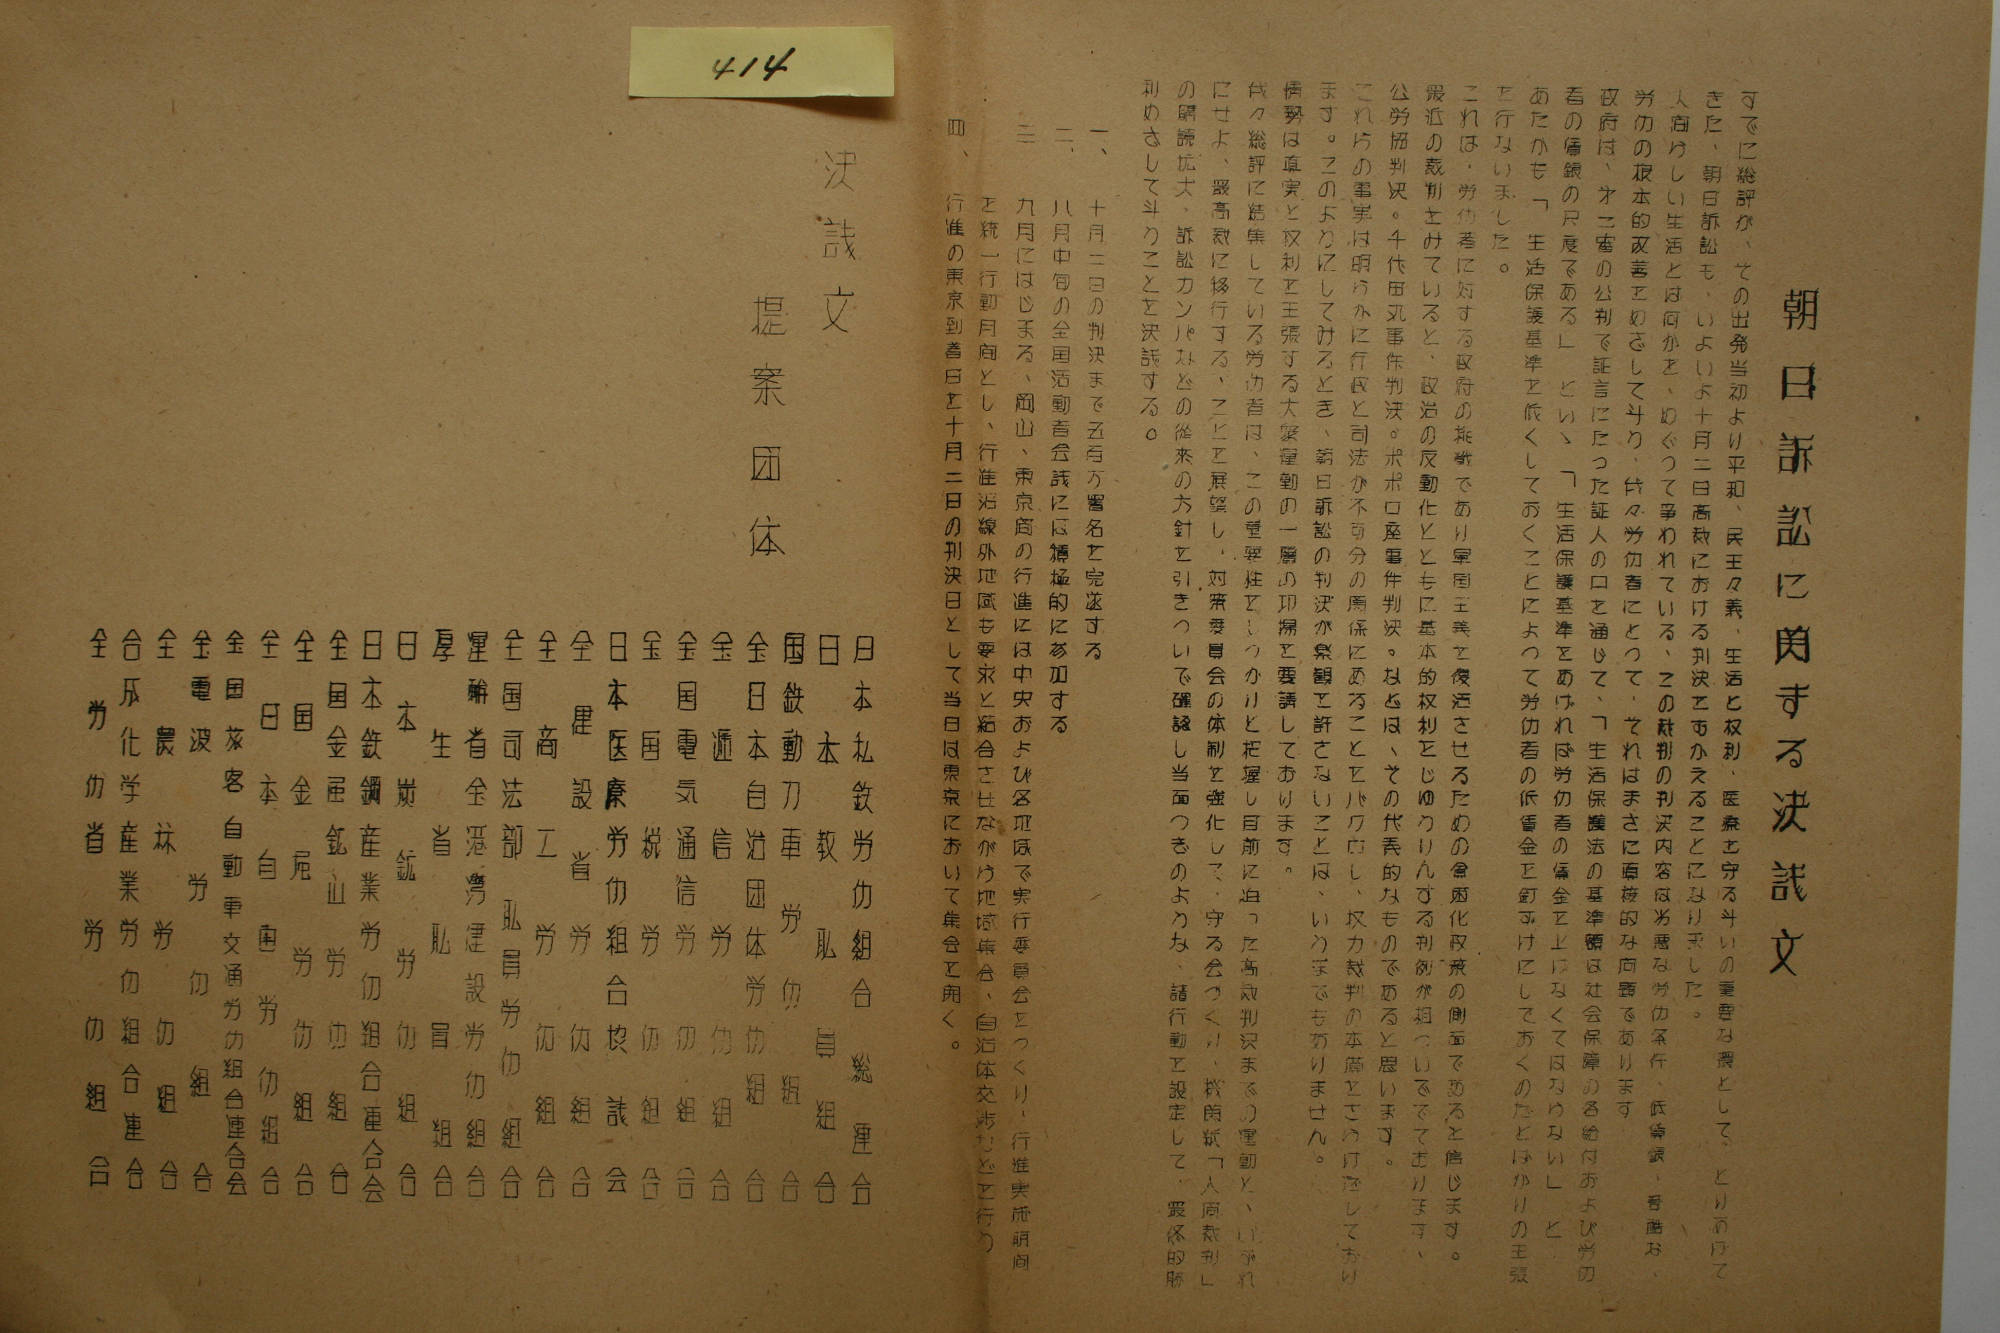 414
朝日訴訟に関する決議文
すでに総評が、その出発当初より平和、民主々義、生活と权利、医療を守る斗いの重要な環として、とりあげて
きた、朝日訴訟も、いよいよ十月二日高裁における判決をむかえることになりました。
人间らしい生活とは何かを、めぐって争われている、この裁判の判決内容は劣悪な労仂条件、低賃銀、苛酷な、
労仂の根本的改善をめざして斗う、我々労仂者にとって、それはまさに直接的な向題であります
政府は、才二審の公判で証言にたった証人の口を通じて、「生活保護法の基準額は社会保障の各給付および労仂
者の賃銀の尺度である」といゝ「生活保護基準をあげれば労仂者の賃金を上げなくてはならない」と、
あたかも「生活保護基準を低くしておくことによって労仂者の低賃金を釘ずけにしておくのだとばかりの主張
を行ないました。
これは、労仂者に対する政府の挑戦であり軍国主義を復活させるための貧困化政策の側面であると信じます。
最近の裁判をみていると、政治の反動化とともに基本的权利をじゆうりんする判例が相ついででております、
公労協判決。千代田丸事件判決。ポポロ座事件判決。などは、その代表的なものであると思います。
これらの事実は明らかに行政と司法が不可分の関係にあることをバクロし、权力裁判の本質をさらけ出しており
ます。このようにしてみるとき、朝日訴訟の判決が楽観を許さないことは、いうまでもありません。
情勢は真実と权利を主張する大衆運動の一層の功揚を要請しております。
我々総評に結集している労仂者は、この重要性をしっかりと把握し目前に迫った高裁判決までの運動と、いずれ
にせよ、最高裁に移行する、ことを展望し、対策委員会の体制を強化して、守る会づくり、机関紙「人间裁判」
の購読拡大、訴訟カンパなどの従来の方針を引きついで確認し当面つぎのような、諸行動を設定して、最終的勝
利めざして斗うことを決議する。
一、十月二日の判決まで五百万署名を完遂する
二、八月中旬の全国活動者会議には積極的に参加する
三 九月にはじまる、岡山、東京间の行進には中央および各地域で実行委員会をつくり、行進実施期间
を統一行動月间とし、行進沿線外地域も要求と結合させながら地域集会、自治体交渉などを行う
四、行進の東京到着日を十月二日の判決日として当日は東京において集会を開く。
決議文
提案団体
日本私鉄労仂組合総連合
日本教職員組合
国鉄動力車労仂組合
全日本自治団体労仂組合
全逓信労仂組合
全国電気通信労仂組合
全国税労仂組合
日本医療労仂組合協議会
全建設省労仂組合
全商工労仂組合
全国司法部職員労仂組合
運輸省全港湾建設労仂組合
厚生省職員組合
日本炭鉱労仂組合
日本鉄鋼産業労仂組合連合会
全国金属鉱山労仂組合
全国金属労仂組合
全日本自由労仂組合
全国旅客自動車交通労仂組合連合会
全電波労仂組合
全農林労仂組合
合成化学産業労仂組合連合
全労仂省労仂組合